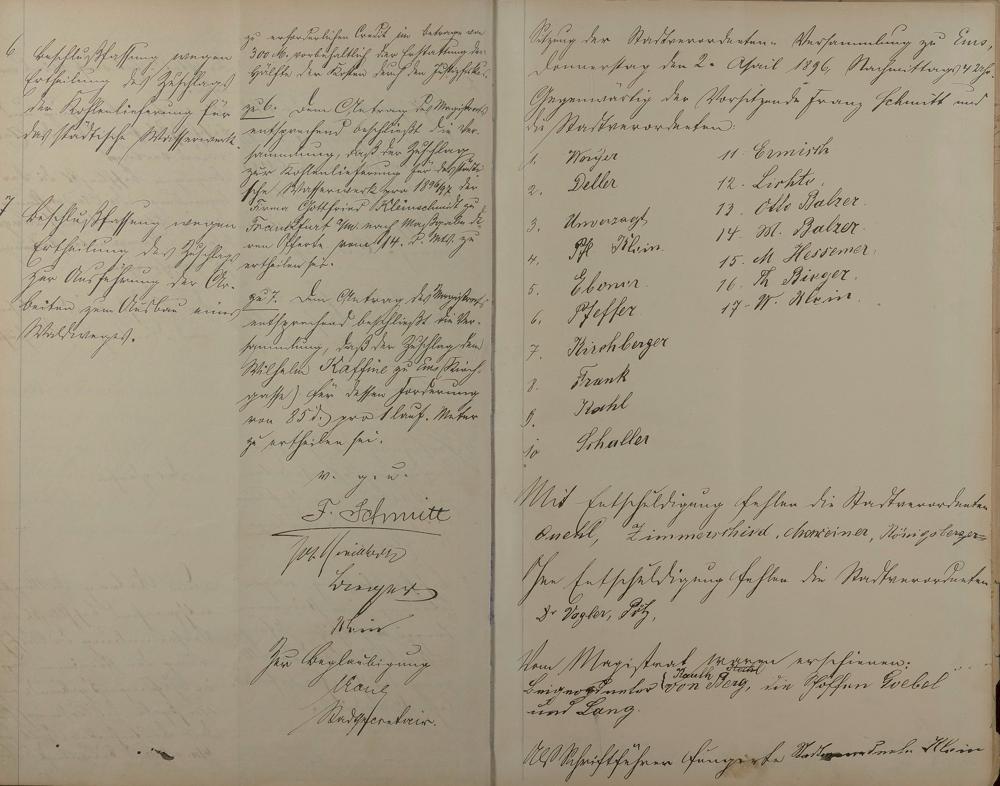 6
Beschlußfassung wegen
Ertheilung des Zuschlags
der Kohlenlieferung für
das städtische Wasserwerk.
7
Beschlußfassung wegen
Ertheilung des Zuschlags
zur Ausführung der Ar-
beiten zum Ausbau eines
Waldweges.
zu erforderlichen Credit im Betrage von
300 M. vorbehaltlich der Erstattung der
Hälfte der Kosten durch den
zu 6. Dem Antrag des Magistrats
entsprechend beschließt die Ver-
sammlung, daß der Zuschlag
zur Kohlenlieferung für das städti-
sche Wasserwerk pro 1896/97 der
Firma Gottfried Kleinschmidt zu
Frankfurt a/M. nach Maßgabe de-
ren Offerte vom 14. v. Mts. zu
ertheilen sei.
zu 7. Dem Antrag des Magistrats
entsprechend beschließt die Ver-
sammlung, daß der Zuschlag dem
Wilhelm Kaffine zu Ems (Kirch-
gasse) für dessen Forderung
von 85 d. pro 1 lauf. Meter
zu ertheilen sei.
v. g. u.
F. Schmitt
Bieger
Klein
Zur Beglaubigung
Kaul
Stadtsecretair.
Sitzung der Stadtverordneten-Versammlung zu Ems,
Donnerstag den 2. April 1896, Nachmittags 4 Uhr.
Gegenwärtig der Vorsitzende Franz Schmitt und
die Stadtverordneten:
1. Woyzer
2. Deller
3. Unverzagt
4. Ph. Klein
5. Ebener
6. Pfeffer
7. Kirchberger
8. Frank
9. Kahl
10 Schaller
11. Ermisch
12. Lichte
13. Otto Balzer
14. M. Balzer
15. M Hessemer
16. Th Bieger
17. W. Klein
Mit Entschuldigung fehlen die Stadtverordneten
Zimmerschied, Königsberger
Ohne Entschuldigung fehlen die Stadtverordneten
Dr Vogler, Pötz,
Vom Magistrat waren erschienen:
Beigeordneter von Berg, die Schöffen Goebel
und Lang.
Als Schriftführer fungirte Klein